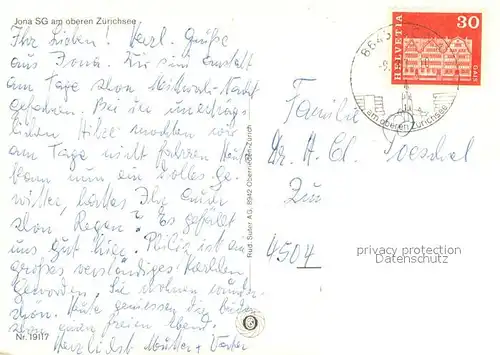 Jona SG am oberen Zürichsee
Ihr Lieben! Herzl. Grüße
aus Jona. Wir sind anstatt
am Tage schon Mittwoch-Nacht
gefahren. Bei der unerträg-
lichen Hitze mochten wir
am Tage nicht fahren. Heut
kam nun ein tolles Ge-
witter, hattet Ihr auch
schon Regen? Es gefällt
uns gut hier. Philip ist ein
großes verständiges Kerlchen
geworden. Sie wohnen wunder-
schön. Heute geniessen die beiden
schon einen freien Abend.
Herzlichst Mutter + Vater
Nr. 19117
Rud. Suter AG, 8942 Oberrieden-Zürich
HELVETIA
30
GAIS
am oberen Zürichsee
Familie
Dr. H. Ed.
4504
privacy protection
Datenschutz